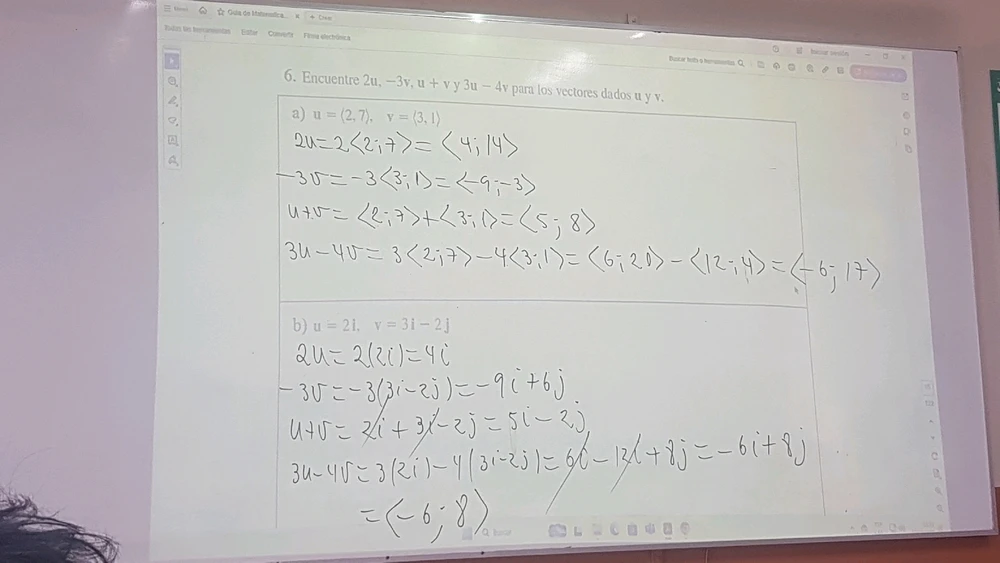 Guía de Matemática...
+ Crear
Todas las herramientas Editar Convertir Firma electrónica
Buscar texto o herramientas
6. Encuentre 2u, −3v, u + v y 3u − 4v para los vectores dados u y v.
a) u = ⟨2, 7⟩, v = ⟨3, 1⟩
2u = 2⟨2;7⟩ = ⟨4;14⟩
−3v = −3⟨3;1⟩ = ⟨−9;−3⟩
u+v = ⟨2;7⟩+⟨3;1⟩ = ⟨5;8⟩
3u−4v = 3⟨2;7⟩−4⟨3;1⟩ = ⟨6;21⟩−⟨12;4⟩ = ⟨−6;17⟩
b) u = 2i, v = 3i − 2j
2u = 2(2i) = 4i
−3v = −3(3i−2j) = −9i+6j
u+v = 2i+3i−2j = 5i−2j
3u−4v = 3(2i)−4(3i−2j) = 6i−12i+8j = −6i+8j
= ⟨−6;8⟩
Buscar